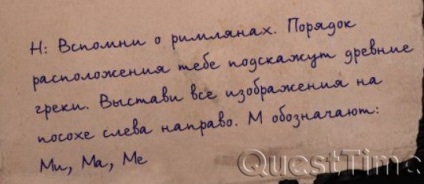 Н: Вспомни о римлянах. Порядок
расположения тебе подскажут древние
греки. Выстави все изображения на
посохе слева направо. М обозначают:
Ми, Ма, Ме
QuestTime